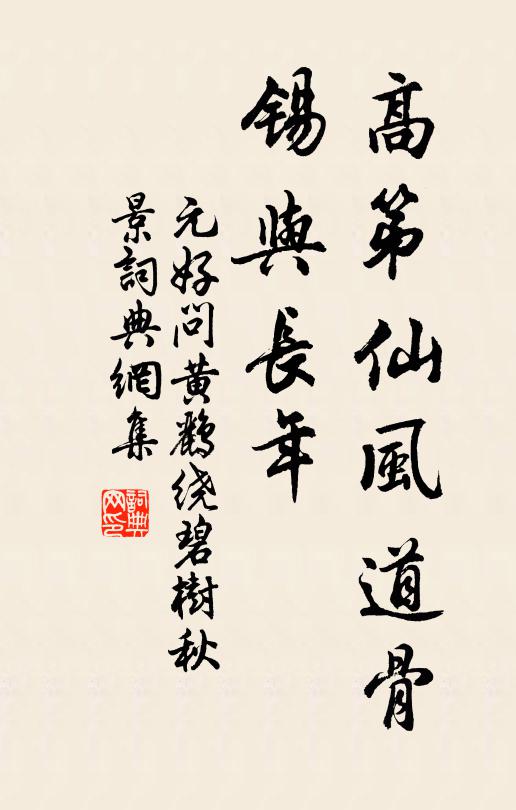 高第仙風道骨
錫與長年
元好问黄鶴绕碧樹秋
景詞典網集
詞典网印